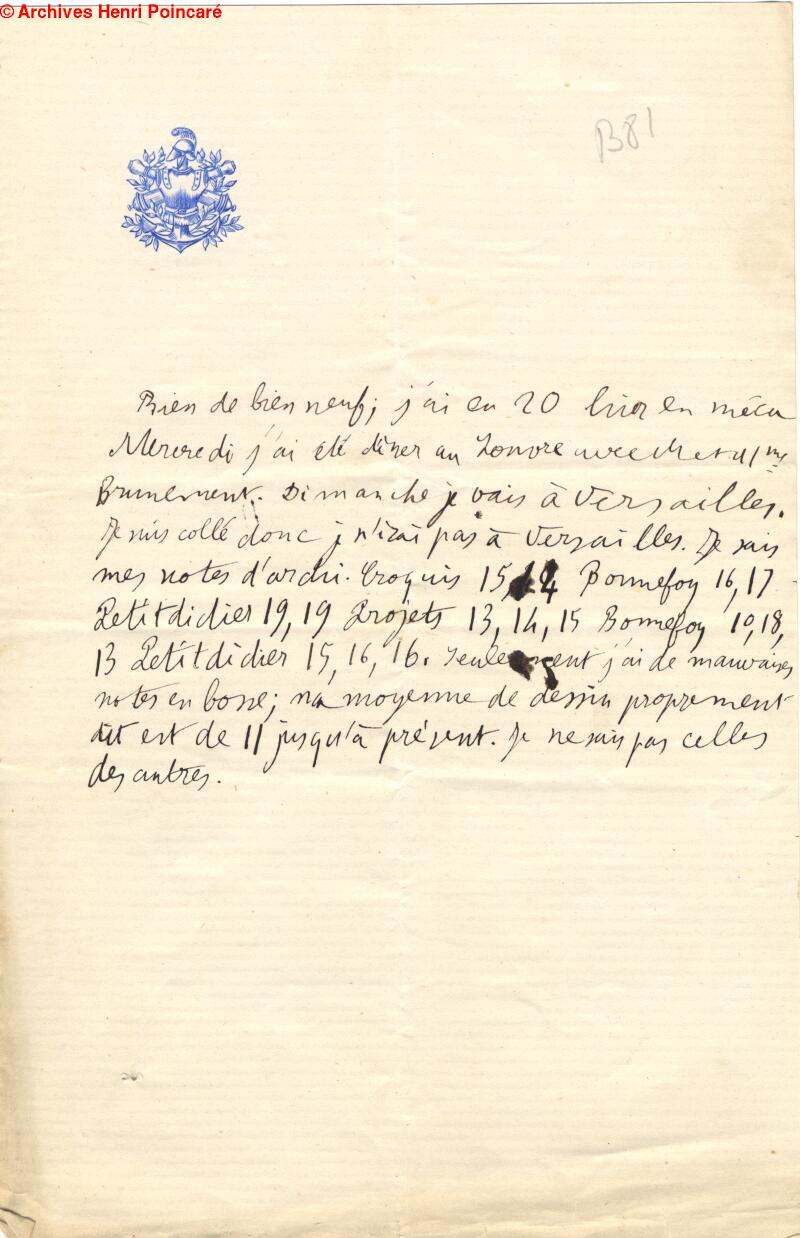 © Archives Henri Poincaré
B81
Rien de bien neuf; j'ai eu 20 hier en méca
Mercredi j'ai été dîner au Louvre avec M et Mme
Brunement. Dimanche je vais à Versailles.
Je suis collé donc je n'irai pas à Versailles. Je sais
mes notes d'archi. Croquis 15, 14 Bonnefoy 16, 17
Petitdidier 19, 19 Projets 13, 14, 15 Bonnefoy 10, 18,
13 Petitdidier 15, 16, 16. Seulement j'ai de mauvaises
notes en bosse; ma moyenne de dessin proprement
dit est de 11 jusqu'à présent. Je ne sais pas celles
des autres.